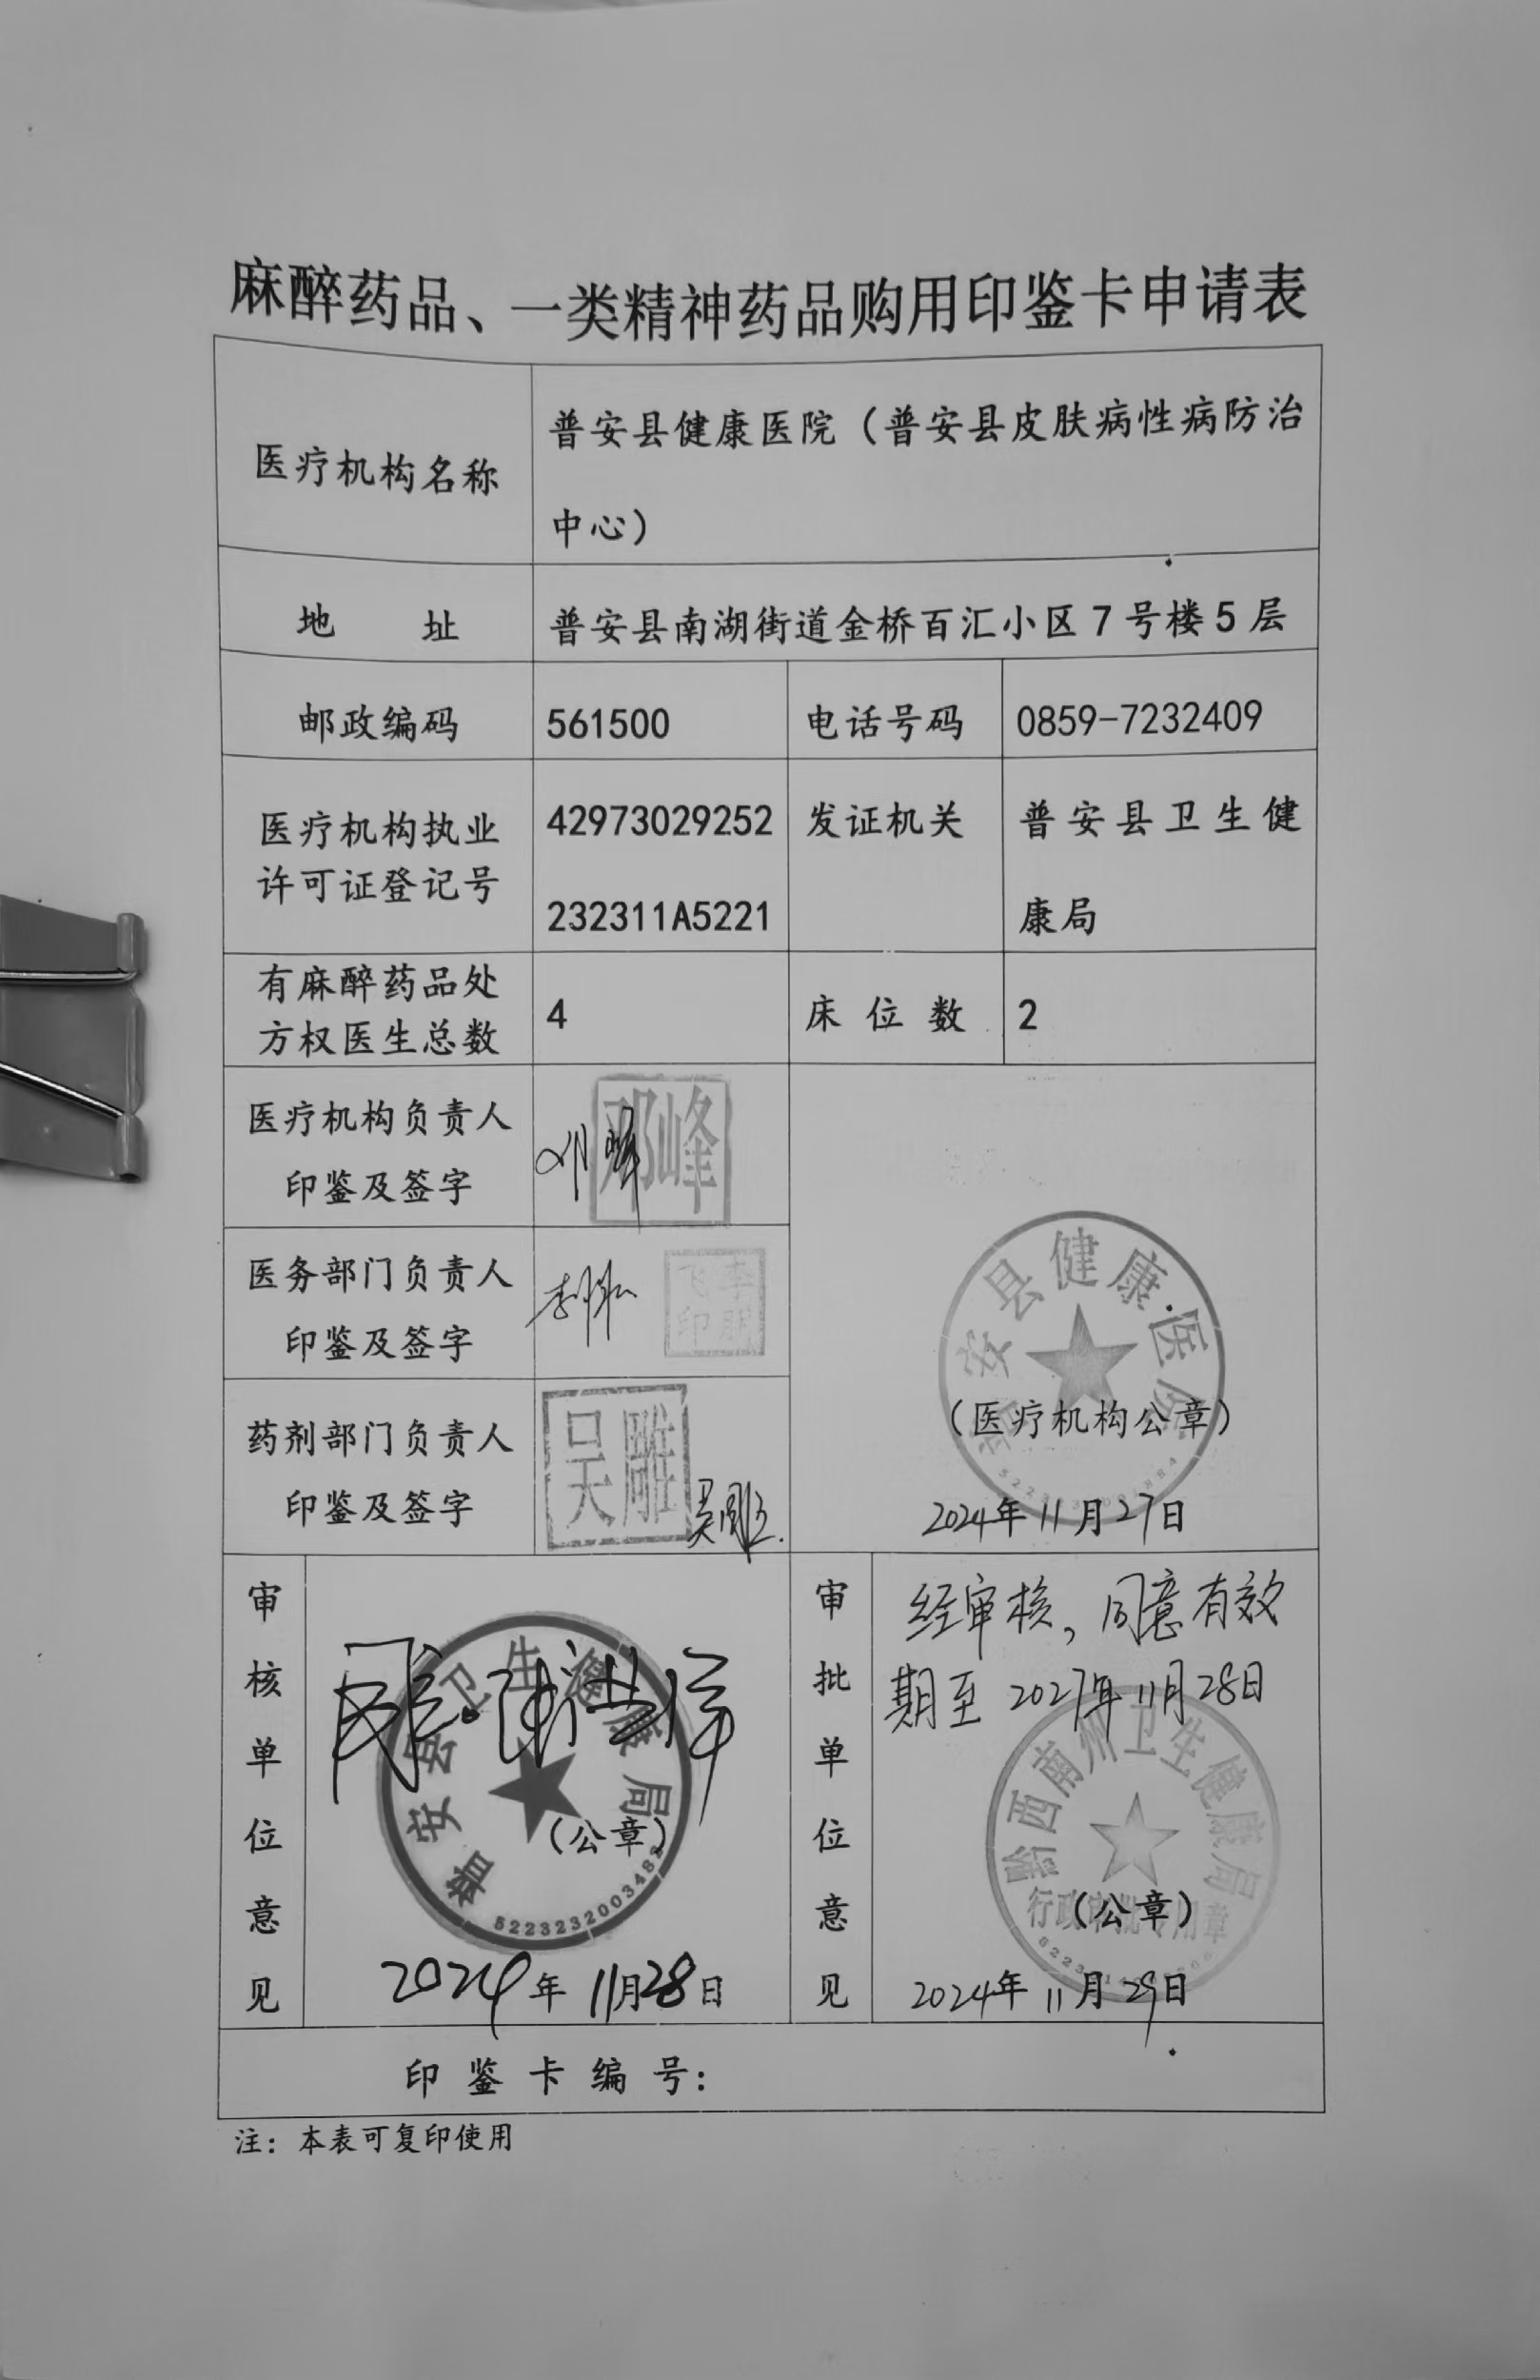 麻醉药品、一类精神药品购用印鉴卡申请表
医疗机构名称
普安县健康医院（普安县皮肤病性病防治
中心）
地 址
普安县南湖街道金桥百汇小区7号楼5层
邮政编码
561500
电话号码
0859-7232409
医疗机构执业
许可证登记号
42973029252
232311A5221
发证机关
普安县卫生健
康局
有麻醉药品处
方权医生总数
4
床位数
2
医疗机构负责人
印鉴及签字
邓峰
医务部门负责人
印鉴及签字
李朋
飞印
药剂部门负责人
印鉴及签字
吴雕
吴雕
普安县健康医院
（医疗机构公章）
2024年11月27日
审核单位意见
普安县卫生健康局
（公章）
5223232003482
2024年11月28日
审批单位意见
经审核，同意有效
期至2027年11月28日
黔西南州卫生健康局
行政审批专用章
（公章）
2024年11月29日
印鉴卡编号：
注：本表可复印使用